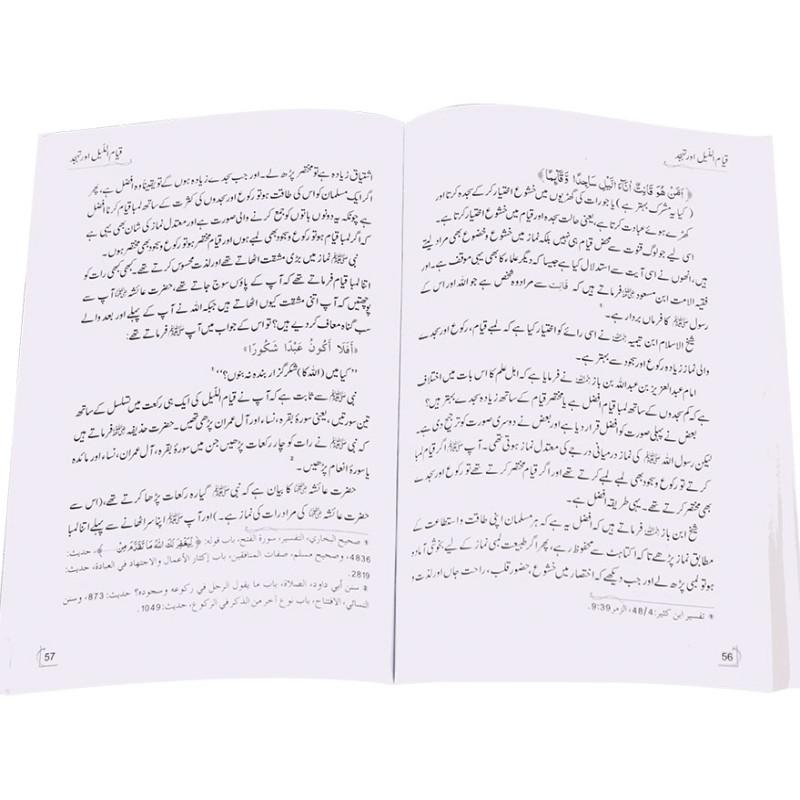 قیام اللیل اور تہجد
﴿اَمَّنْ هُوَ قَانِتٌ اٰنَآءَ الَّيْلِ سَاجِدًا وَّقَآىِٕمًا﴾
"(کیا یہ مشرک بہتر ہے) یا جو رات کی گھڑیوں میں خشوع اختیار کر کے سجدہ کرتا اور
کھڑے ہوئے عبادت کرتا ہے، یعنی حالت سجدہ اور قیام میں خشوع اختیار کرتا ہے۔
اسی لیے جو لوگ قنوت سے محض قیام ہی نہیں بلکہ نماز میں خشوع و خضوع بھی مراد لیتے
ہیں، انھوں نے اسی آیت سے استدلال کیا ہے جیسا کہ دیگر علماء کا بھی یہی موقف ہے۔ اور
فقیہ الامت ابن مسعود ؓ فرماتے ہیں کہ قَانِتٌ سے مراد وہ شخص ہے جو اللہ اور اس کے
رسول ﷺ کا فرماں بردار ہے۔
شیخ الاسلام ابن تیمیہ ؒ نے اسی رائے کو اختیار کیا ہے کہ لمبے قیام، رکوع اور سجدے
والی نماز زیادہ رکوع اور سجود سے بہتر ہے۔
امام عبدالعزیز بن عبداللہ بن باز ؒ نے فرمایا ہے کہ اہل علم کا اس بات میں اختلاف
ہے کہ کم سجدوں کے ساتھ لمبا قیام افضل ہے یا مختصر قیام کے ساتھ زیادہ سجدے بہتر ہیں؟
بعض نے پہلی صورت کو افضل قرار دیا ہے اور بعض نے دوسری صورت کو ترجیح دی ہے۔
لیکن رسول اللہ ﷺ کی نماز درمیانی درجے کی معتدل نماز ہوتی تھی۔ آپ ﷺ اگر قیام لمبا
کرتے تو رکوع و سجود بھی لمبے لمبے کرتے تھے اور اگر قیام مختصر کرتے تھے تو رکوع اور سجدے
بھی مختصر کرتے تھے۔ یہی طریقہ افضل ہے۔
شیخ ابن باز ؒ فرماتے ہیں کہ افضل یہ ہے کہ ہر مسلمان اپنی طاقت و استطاعت کے
مطابق نماز پڑھے تاکہ اکتاہٹ سے محفوظ رہے، پھر اگر طبیعت لمبی نماز کے لیے بخوشی آمادہ
ہو تو لمبی پڑھ لے اور جب دیکھے کہ اختصار میں خشوع، حضور قلب، راحت جاں اور لذت و
① تفسیر ابن کثیر: 48/4، الزمر 9:39.
56
قیام اللیل اور تہجد
اشتیاق زیادہ ہے تو مختصر پڑھ لے۔ اور جب سجدے زیادہ ہوں گے تو یقیناً وہ افضل ہے، پھر
اگر ایک مسلمان کو اس کی طاقت ہو تو رکوع اور سجدوں کی کثرت کے ساتھ لمبا قیام کرنا افضل
ہے چونکہ یہ دونوں باتوں کو جمع کرنے والی صورت ہے اور معتدل نماز کی شان بھی یہی ہے
کہ اگر لمبا قیام ہو تو رکوع و سجود بھی لمبے ہوں اور قیام مختصر ہو تو رکوع و سجود بھی مختصر ہوں۔
نبی ﷺ نماز میں بڑی مشقت اٹھاتے تھے اور لذت محسوس کرتے تھے۔ کبھی کبھی رات کو
اتنا لمبا قیام فرماتے تھے کہ آپ کے پاؤں سوج جاتے تھے، حضرت عائشہ ؓ آپ سے
پوچھتیں کہ آپ اتنی مشقت کیوں اٹھاتے ہیں حالانکہ اللہ نے آپ کے پہلے اور بعد والے
سب گناہ معاف کر دیے ہیں؟ تو اس کے جواب میں آپ ﷺ فرماتے تھے:
«أَفَلَا أَكُونُ عَبْدًا شَكُورًا»
"کیا میں (اللہ کا) شکر گزار بندہ نہ بنوں؟" ①
نبی ﷺ سے ثابت ہے کہ آپ نے قیام اللیل کی ایک ہی رکعت میں تسلسل کے ساتھ
تین سورتیں، یعنی سورۂ بقرہ، نساء اور آل عمران پڑھی تھیں۔ حضرت حذیفہ ؓ فرماتے ہیں
کہ نبی ﷺ نے رات کو چار رکعات پڑھیں جن میں سورۂ بقرہ، آل عمران، نساء اور مائدہ
یا سورۂ انعام پڑھیں۔ ②
حضرت عائشہ ؓ کا بیان ہے کہ نبی ﷺ گیارہ رکعات پڑھا کرتے تھے، (اس سے
حضرت عائشہ ؓ کی مراد رات کی نماز ہے۔) اور آپ ﷺ اپنا سر اٹھانے سے پہلے اتنا لمبا
① صحيح البخاري، التفسير، سورة الفتح، باب قوله: ﴿لِيَغْفِرَ لَكَ اللّٰهُ مَا تَقَدَّمَ مِنْ ...﴾، حديث:
4836، وصحيح مسلم، صفات المنافقين، باب إكثار الأعمال والاجتهاد في العبادة، حديث:
2819.
② سنن أبي داود، الصلاة، باب ما يقول الرجل في ركوعه وسجوده؟ حديث: 873، وسنن
النسائي، الافتتاح، باب نوع آخر من الذكر في الركوع، حديث: 1049.
57